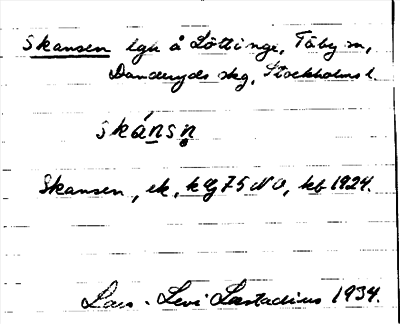 Skansen lgh å Löttinge, Täby sn,
Danderyds skg, Stockholms l.
skánsn̥
Skansen, ek, 75 NO, kb 1924.
Lars-Levi Læstadius 1934.